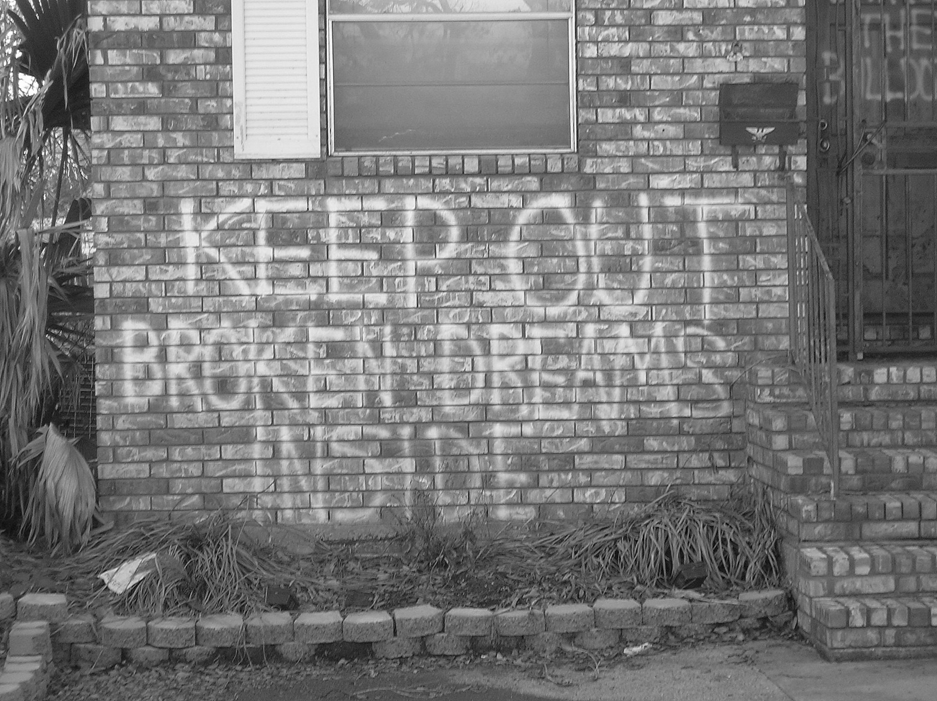 KEEP OUT
BROKEN DREAMS
INSIDE
THE